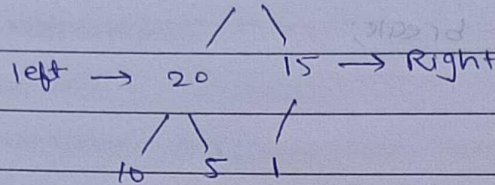 left → 20 15 → Right
10 5 1